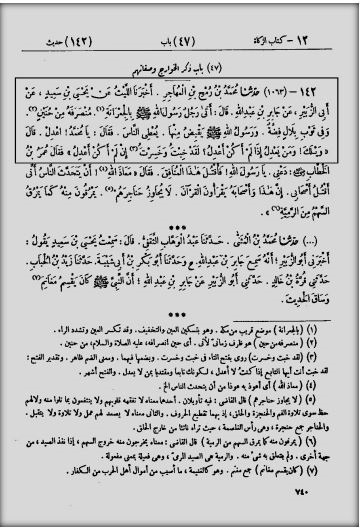 ١٢ - كتاب الزكاة (٤٧) باب (١٤٢) حديث
(٤٧) باب ذكر الخوارج وصفاتهم
١٤٢ - (١٠٦٣) حدثنا محمد بن رمح بن المهاجر. أخبرنا الليث عن يحيى بن سعيد، عن
أبي الزبير، عن جابر بن عبد الله. قال: أتى رجل رسول الله ﷺ بالجعرانة(١). منصرفه من حنين(٢).
وفي ثوب بلال فضة. ورسول الله ﷺ يقبض منها. يعطي الناس. فقال: يا محمد! اعدل. قال
« ويلك! ومن يعدل إذا لم أكن أعدل؟ لقد خبت وخسرت(٣) إن لم أكن أعدل » فقال عمر بن
الخطاب رضي الله عنه: دعني. يا رسول الله! فأقتل هذا المنافق. فقال « معاذ الله(٤)! أن يتحدث الناس أني
أقتل أصحابي. إن هذا وأصحابه يقرأون القرآن. لا يجاوز حناجرهم(٥). يمرقون منه كما يمرق
السهم من الرمية(٦) ».
***
(...) حدثنا محمد بن المثنى. حدثنا عبد الوهاب الثقفي. قال: سمعت يحيى بن سعيد يقول:
أخبرني أبو الزبير؛ أنه سمع جابر بن عبد الله. ح وحدثنا أبو بكر بن أبي شيبة. حدثنا زيد بن الحباب.
حدثني قرة بن خالد. حدثني أبو الزبير عن جابر بن عبد الله؛ أن النبي ﷺ كان يقسم مغانم(٧).
وساق الحديث.
***
(١) (بالجعرانة) موضع قريب من مكة. وهو بتسكين العين والتخفيف. وقد تكسر العين وتشدد الراء.
(٢) (منصرفه من حنين) هو ظرف زماني لأتى. أي حين انصرافه، عليه الصلاة والسلام، من حنين.
(٣) (لقد خبت وخسرت) روى بفتح التاء في خبت وخسرت. وبضمها فيهما. ومعنى الضم ظاهر. وتقدير الفتح:
خبت أنت أيها التابع إذا كنت لا أعدل، لكونك تابعا ومقتديا بمن لا يعدل. والفتح أشهر.
(٤) (معاذ الله) أي أعوذ به عوذا من أن يتحدث الناس الخ.
(٥) (لا يجاوز حناجرهم) قال القاضي: فيه تأويلان. أحدهما معناه لا تفقهه قلوبهم ولا ينتفعون بما تلوا منه ولا لهم
حظ سوى تلاوة الفم والحنجرة والحلق، إذ بهما تقطيع الحروف. والثاني معناه لا يصعد لهم عمل ولا تلاوة ولا يتقبل.
والحناجر جمع حنجرة، وهي رأس الغلصمة، حيث تراه ناتئا من خارج الحلق.
(٦) (يمرقون منه كما يمرق السهم من الرمية) قال القاضي: معناه يخرجون منه خروج السهم، إذا نفذ الصيد، من
جهة أخرى. ولم يتعلق به شيء منه. والرمية هي الصيد المرمى، وهي فعيلة بمعنى مفعولة.
(٧) (كان يقسم مغانم) جمع مغنم. وهو كالغنيمة، ما أصيب من أموال أهل الحرب من الكفار.
٧٤٠